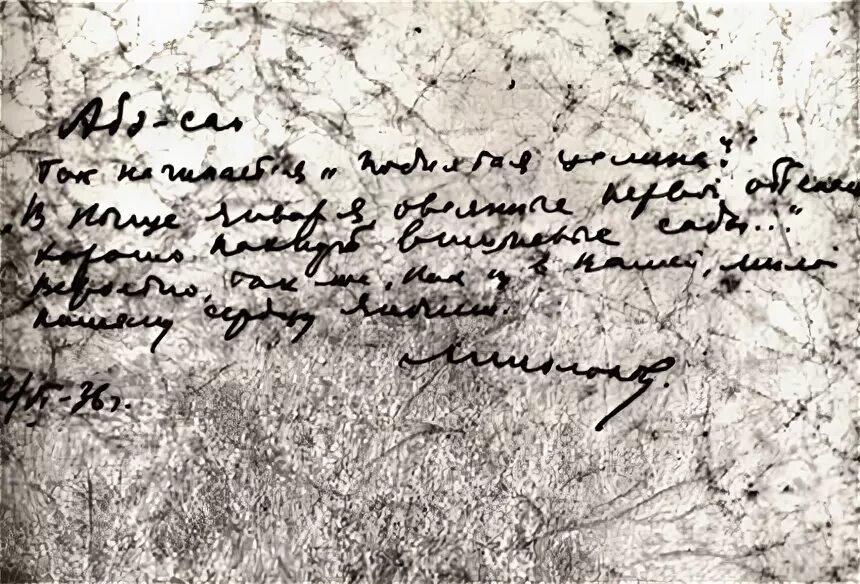 Абэ-сан
Так начинается „Поднятая целина":
„В конце января, овеянные первой оттепел
хорошо пахнут вишневые сады..."
Вероятно, так же, как и в вашей, милой
нашему сердцу Японии.
МШолохов.
/VI-36г.